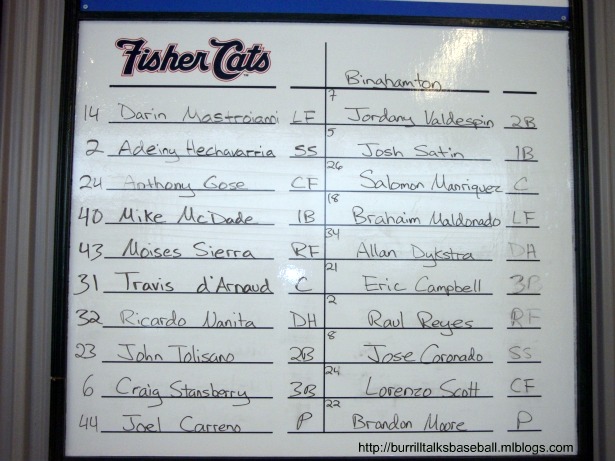 Fisher Cats Binghamton
14 Darin Mastroianni LF 7 Jordany Valdespin 2B
2 Adeiny Hechavarria SS 5 Josh Satin 1B
24 Anthony Gose CF 26 Salomon Manriquez C
40 Mike McDade 1B 18 Brahaim Maldonado LF
43 Moises Sierra RF 34 Allan Dykstra DH
31 Travis d'Arnaud C 21 Eric Campbell 3B
32 Ricardo Nanita DH 2 Raul Reyes RF
23 John Tolisano 2B 8 Jose Coronado SS
6 Craig Stansberry 3B 24 Lorenzo Scott CF
44 Joel Carreno P 22 Brandon Moore P
http://burrilltalksbaseball.mlblogs.com